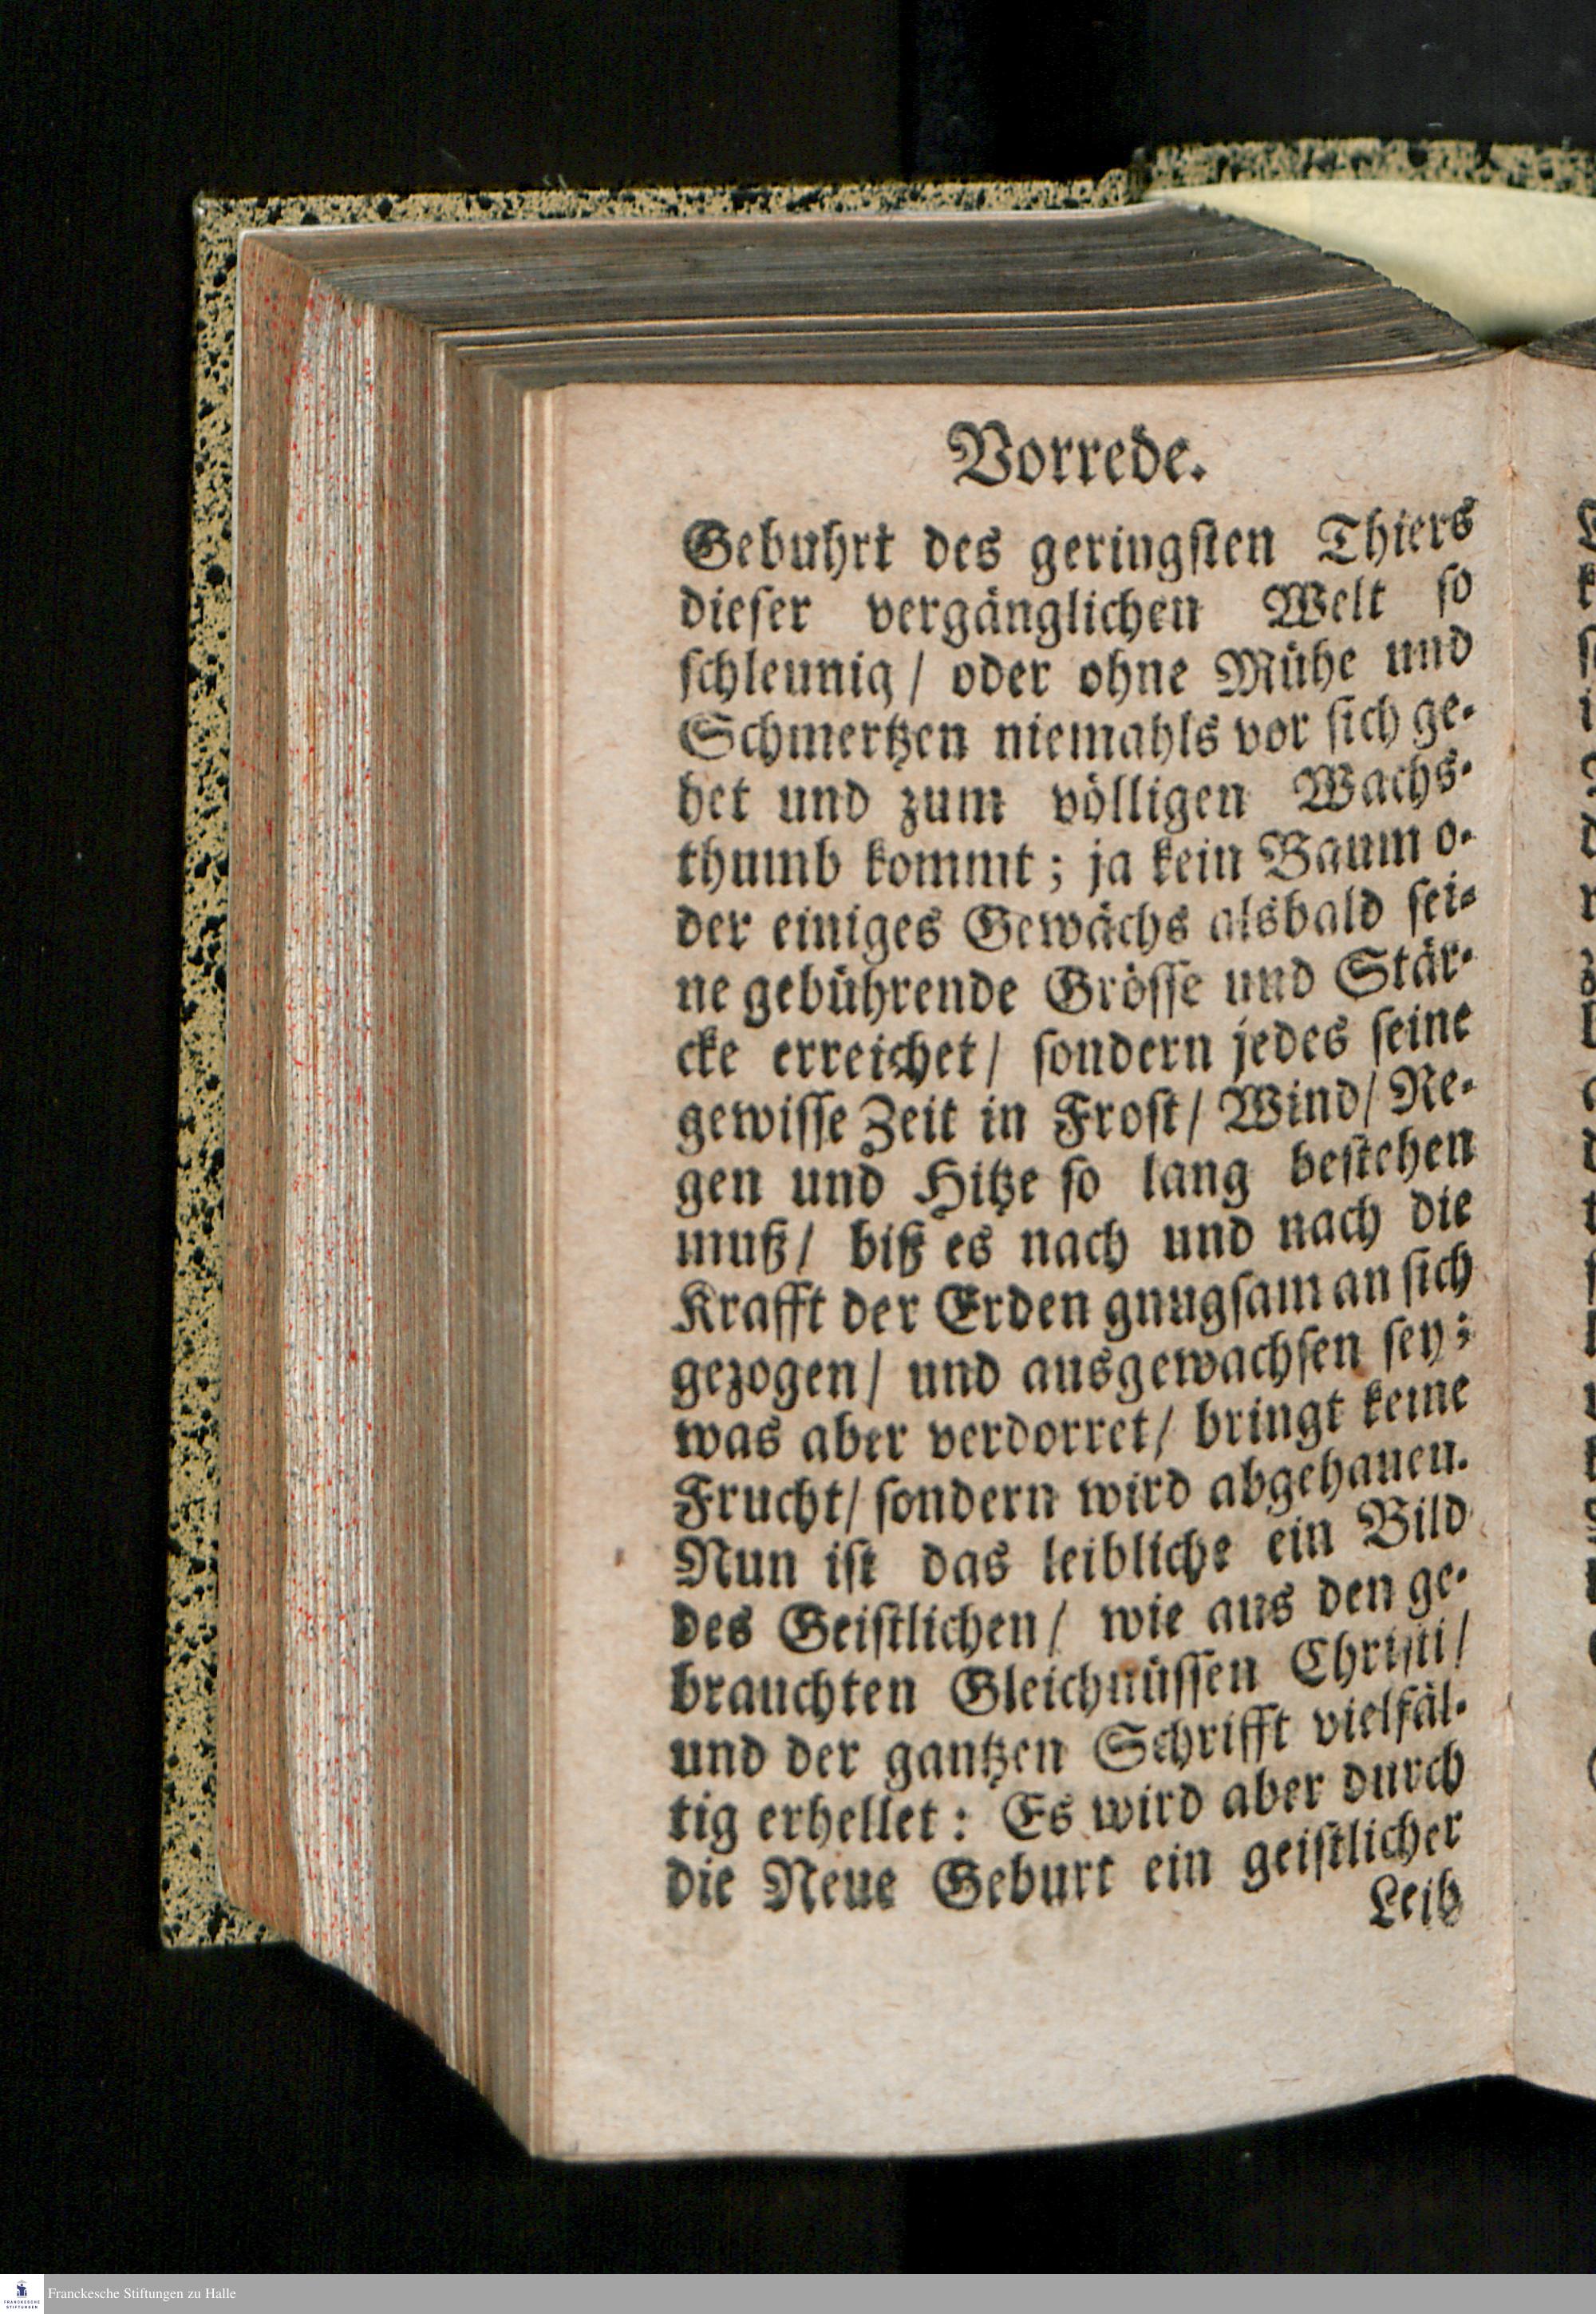 Vorrede.
Gebuhrt des geringsten Thiers
dieser vergänglichen Welt so
schleunig / oder ohne Mühe und
Schmertzen niemahls vor sich ge-
het und zum völligen Wachs-
thumb kommt ; ja kein Baum o-
der einiges Gewächs alsbald sei-
ne gebührende Grösse und Stär-
cke erreichet / sondern jedes seine
gewisse Zeit in Frost / Wind / Re-
gen und Hitze so lang bestehen
muß / biß es nach und nach die
Krafft der Erden gnugsam an sich
gezogen / und ausgewachsen sey ;
was aber verdorret / bringt keine
Frucht / sondern wird abgehauen.
Nun ist das leibliche ein Bild
des Geistlichen / wie aus den ge-
brauchten Gleichnüssen Christi /
und der gantzen Schrifft vielfäl-
tig erhellet : Es wird aber durch
die Neue Geburt ein geistlicher
Leib
Franckesche Stiftungen zu Halle